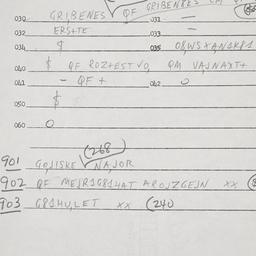 030 GRIBENES √ QF GRIBENSKS
031 —
032 ERS+TE 033 —
034 $ 035 08,WSXAN1K81
040 $ QF ROZ+EST√O, QM VAJNAXT+
041 — QF + 042 O
050 $
060 O
(268)
901 GOJISKE √ NAJOR
902 QF MEJR1G81HAT AROJZGEJN XX
903 G81HVLET XX (240